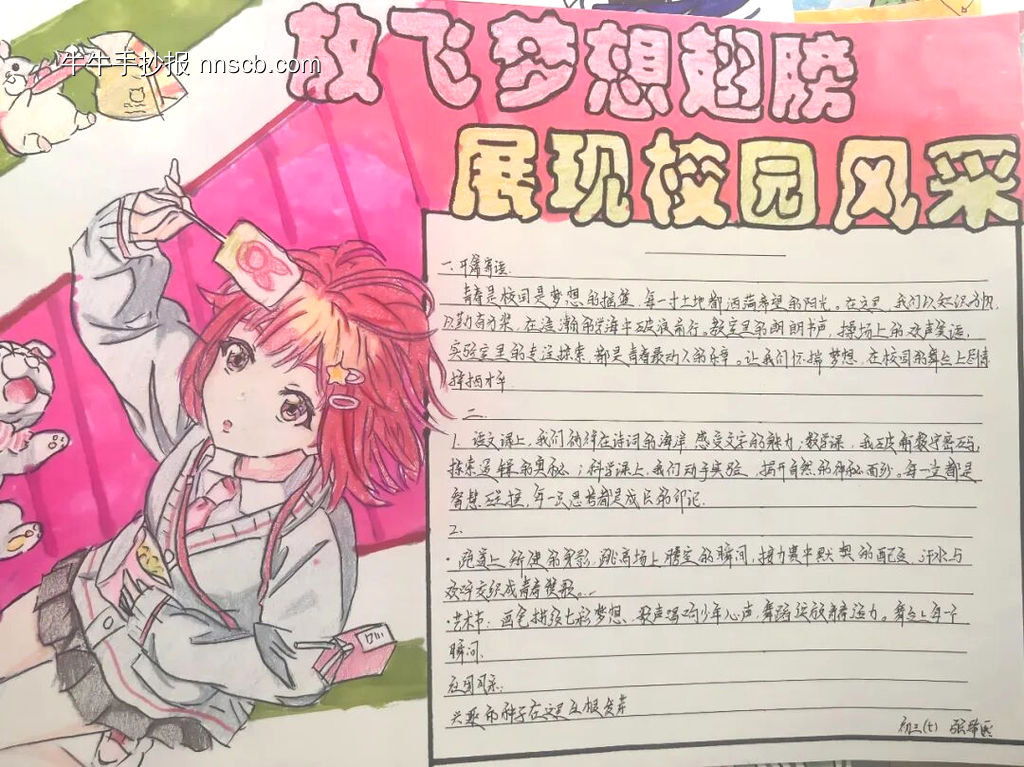 牛牛手抄报 nnscb.com
放飞梦想翅膀
展现校园风采
一.开篇寄语.
青春是校园是梦想的摇篮,每一寸土地都洒满希望的阳光。在这里,我们以知识为帆,
以勤奋为桨,在浩瀚的学海中破浪前行。教室里的朗朗书声,操场上的欢声笑语,
实验室里的专注探索,都是青春最动人的乐章。让我们怀揣梦想,在校园的舞台上尽情
挥洒才华
二.
1. 语文课上,我们徜徉在诗词的海洋,感受文字的魅力;数学课,我
探索逻辑的奥秘;科学课上,我们动手实验,揭开自然的神秘面纱。每一 都是
智慧 碰撞,每一次思考都是成长的印记.
2.
·跑道上矫健的身影,跳高场上腾空的瞬间,接力赛中默契的配合,汗水与
欢呼交织成青春赞歌...
·艺术节:画笔描绘七彩梦想,歌声唱响少年心声,舞蹈绽放青春活力。舞台上每一个
瞬间.
社团风采:
兴趣的种子在这里生根发芽
初三(七)